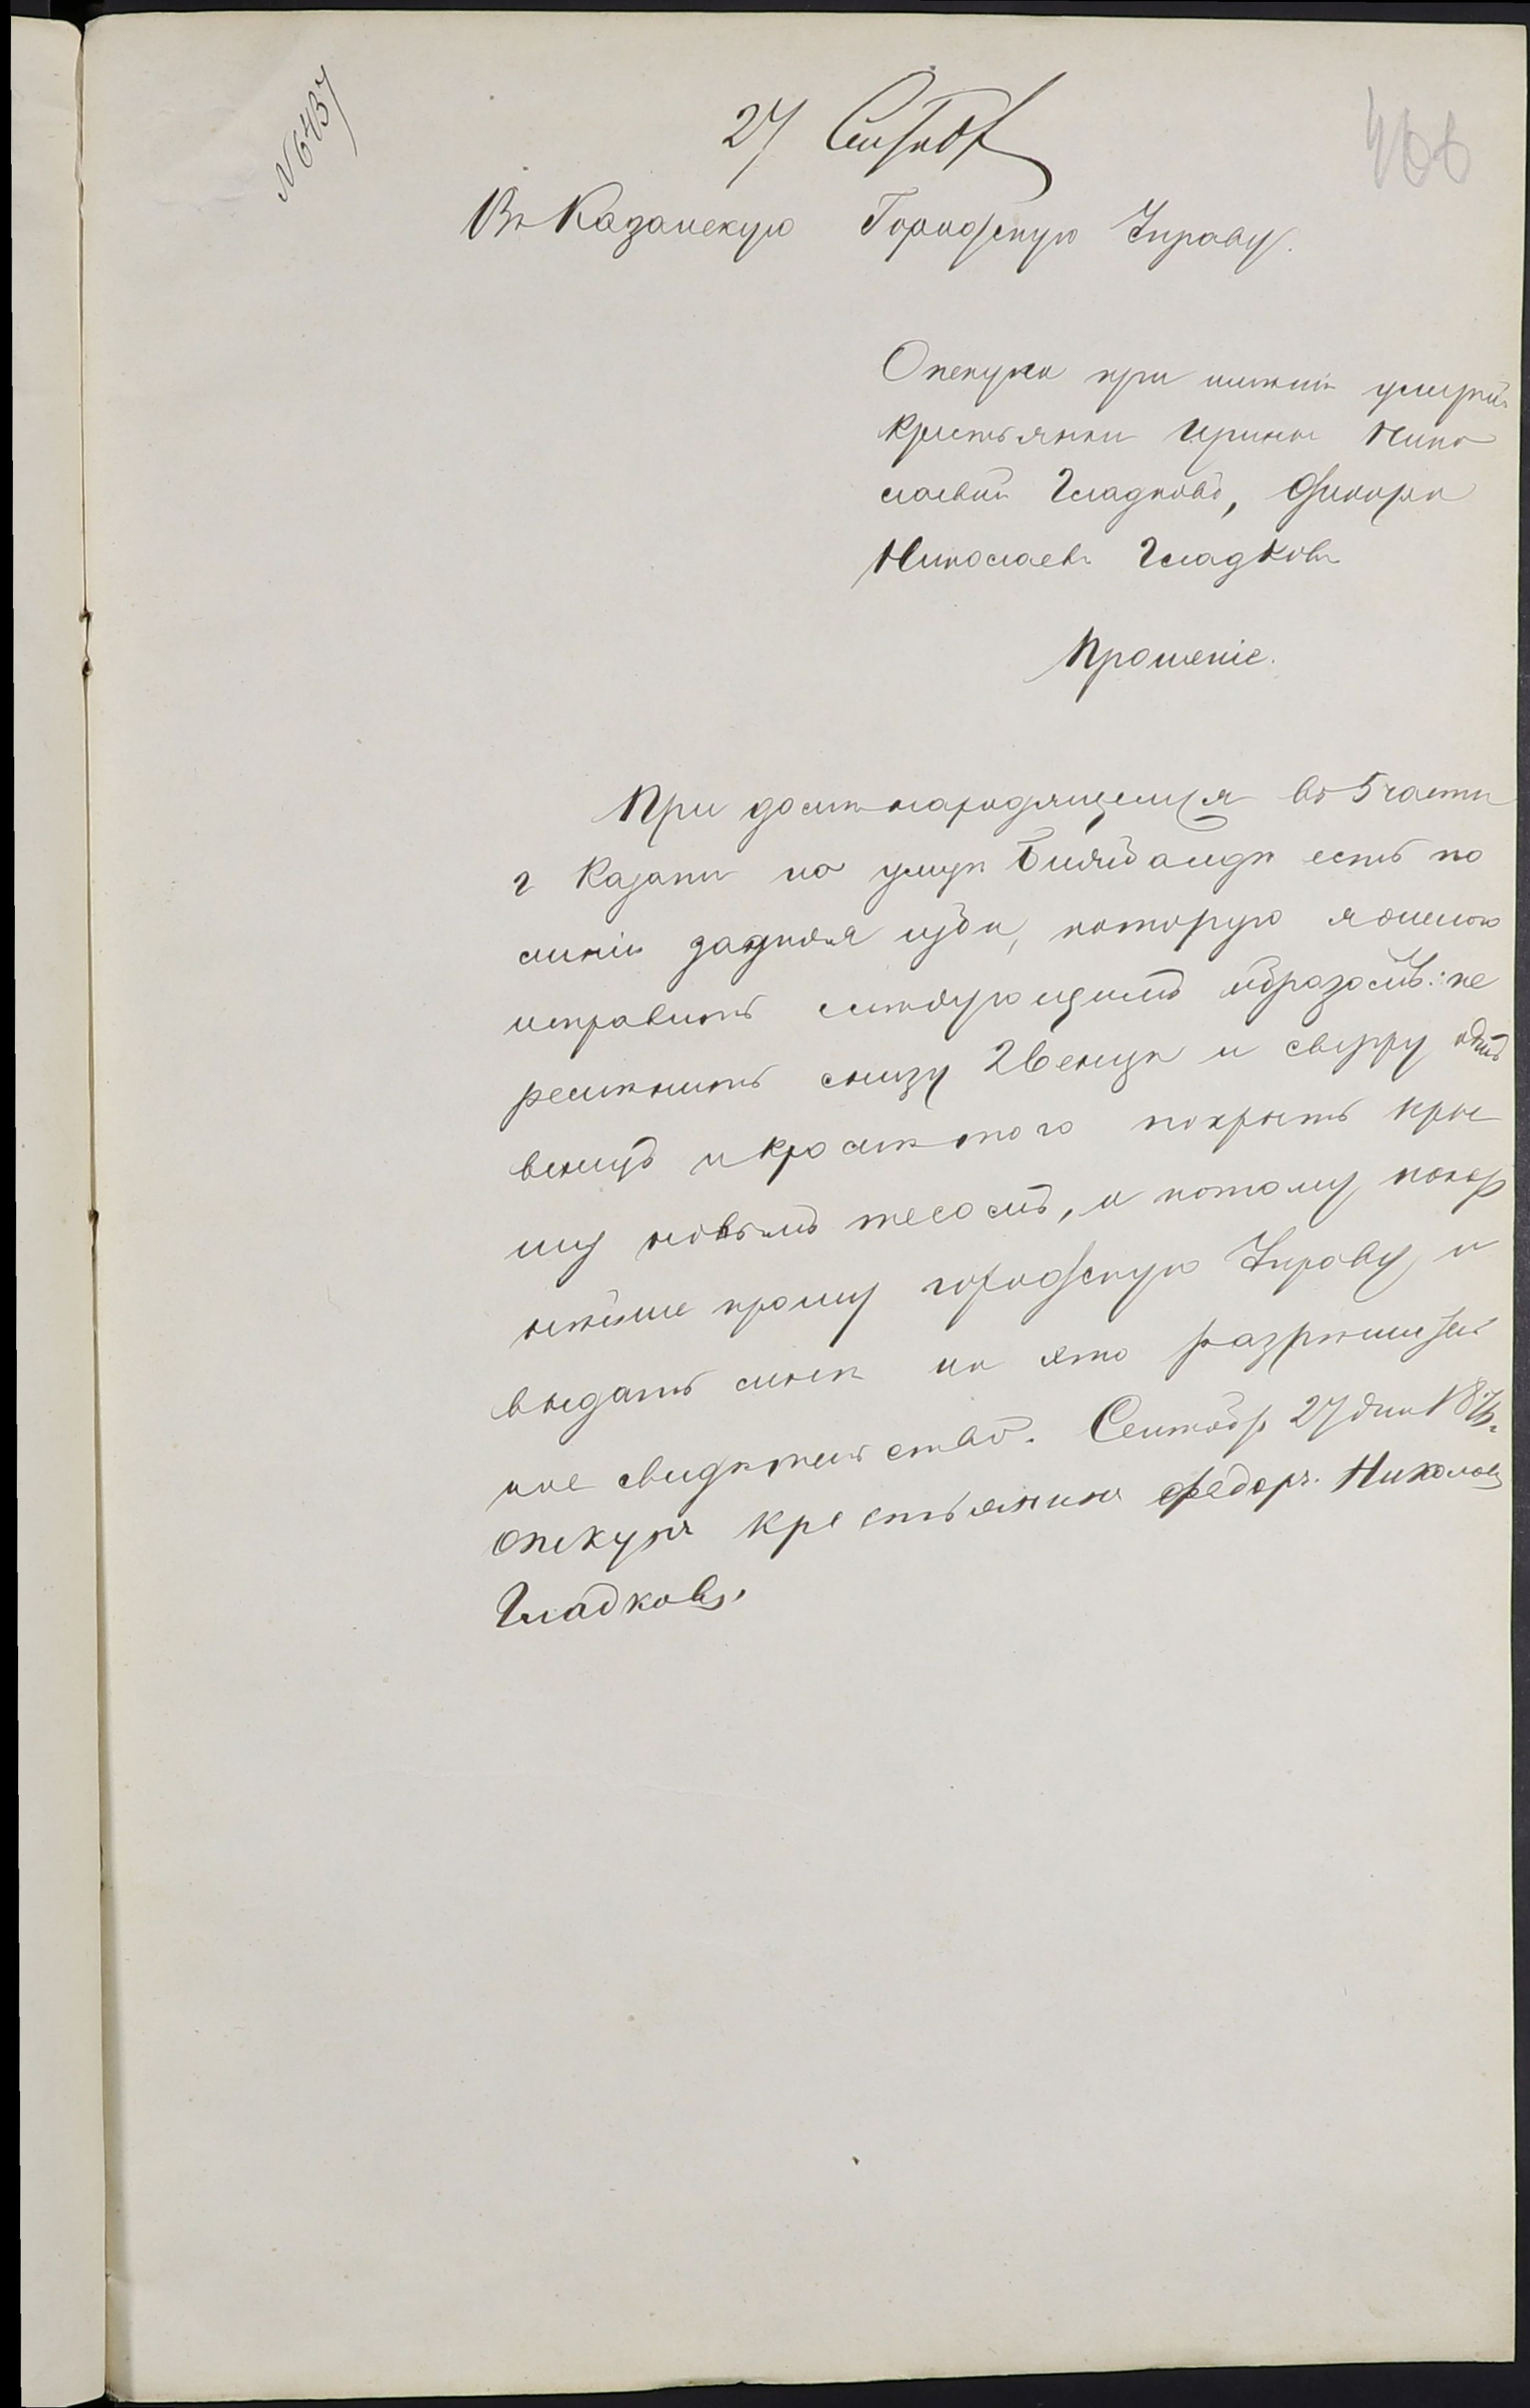 N 6437
27 Сентбр
466
Въ Казанскую Городскую Управу.
Опекуна при имѣнiи умершей
крестьянки Ирины Нико
лаевой Гладковой, Федора
Николаева Гладкова
Прошенiе.
При домѣ находящемся въ 5 части
г Казани на улицѣ есть по
линiи задняя изба, которую я желаю
исправить слѣдующимъ образомъ: пе
ремѣнить снизу 2 венца и сверху одинъ
венецъ и кромѣ того покрыть кры
шу новымъ тесомъ, и потому покор
нѣйше прошу городскую Управу
выдать мнѣ на это разрѣшитель
ное свидѣтельство. Сентябр 27 дня
опекунъ крестьянинъ федоръ Николаев
Гладковъ.